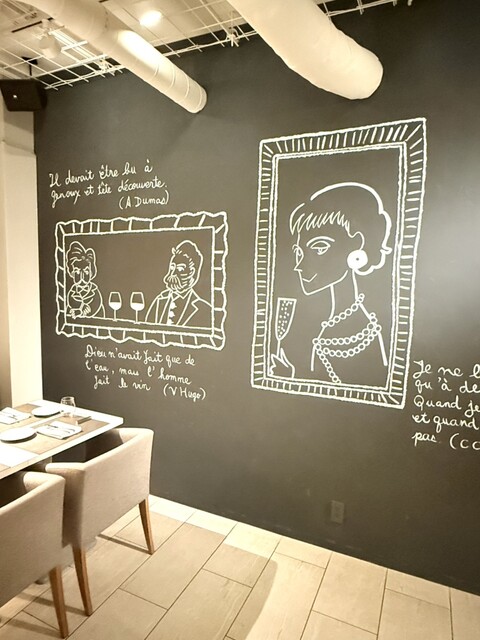 Il devait être bu à
genoux et tête découverte.
(A Dumas)
Dieu n'avait fait que de
l'eau, mais l'homme
fait le vin (V Hugo)
Je ne
qu'à de
Quand je
et quand
pas. (CO